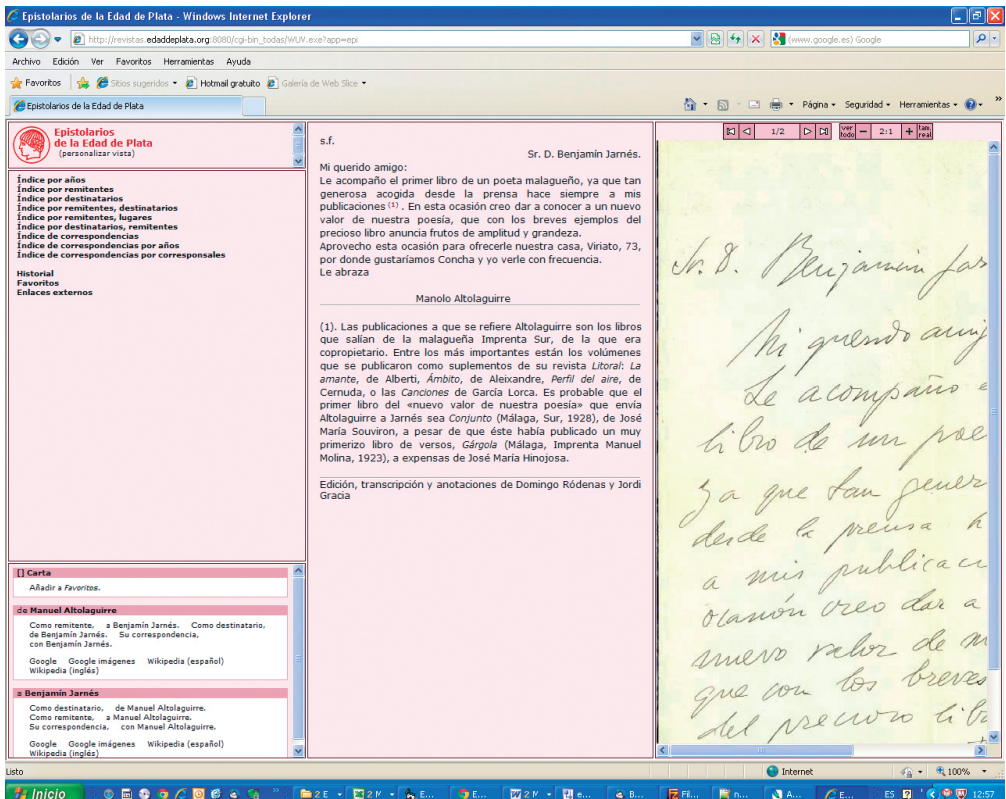 Epistolarios de la Edad de Plata - Windows Internet Explorer
http://revistas.edaddeplata.org:8080/cgi-bin_todas/WUV.exe?app=epi
(www.google.es) Google
Archivo Edición Ver Favoritos Herramientas Ayuda
Favoritos Sitios sugeridos Hotmail gratuito Galería de Web Slice
Epistolarios de la Edad de Plata
Página Seguridad Herramientas »
Epistolarios
de la Edad de Plata
(personalizar vista)
Índice por años
Índice por remitentes
Índice por destinatarios
Índice por remitentes, destinatarios
Índice por remitentes, lugares
Índice por destinatarios, remitentes
Índice de correspondencias
Índice de correspondencias por años
Índice de correspondencias por corresponsales
Historial
Favoritos
Enlaces externos
[] Carta
Añadir a Favoritos.
de Manuel Altolaguirre
Como remitente, a Benjamín Jarnés. Como destinatario,
de Benjamín Jarnés. Su correspondencia,
con Benjamín Jarnés.
Google Google imágenes Wikipedia (español)
Wikipedia (inglés)
a Benjamín Jarnés
Como destinatario, de Manuel Altolaguirre.
Como remitente, a Manuel Altolaguirre.
Su correspondencia, con Manuel Altolaguirre.
Google Google imágenes Wikipedia (español)
Wikipedia (inglés)
s.f.
Sr. D. Benjamín Jarnés.
Mi querido amigo:
Le acompaño el primer libro de un poeta malagueño, ya que tan
generosa acogida desde la prensa hace siempre a mis
publicaciones (1) . En esta ocasión creo dar a conocer a un nuevo
valor de nuestra poesía, que con los breves ejemplos del
precioso libro anuncia frutos de amplitud y grandeza.
Aprovecho esta ocasión para ofrecerle nuestra casa, Viriato, 73,
por donde gustaríamos Concha y yo verle con frecuencia.
Le abraza
Manolo Altolaguirre
(1). Las publicaciones a que se refiere Altolaguirre son los libros
que salían de la malagueña Imprenta Sur, de la que era
copropietario. Entre los más importantes están los volúmenes
que se publicaron como suplementos de su revista Litoral: La
amante, de Alberti, Ámbito, de Aleixandre, Perfil del aire, de
Cernuda, o las Canciones de García Lorca. Es probable que el
primer libro del «nuevo valor de nuestra poesía» que envía
Altolaguirre a Jarnés sea Conjunto (Málaga, Sur, 1928), de José
María Souviron, a pesar de que éste había publicado un muy
primerizo libro de versos, Gárgola (Málaga, Imprenta Manuel
Molina, 1923), a expensas de José María Hinojosa.
Edición, transcripción y anotaciones de Domingo Ródenas y Jordi
Gracia
1/2 ver todo − 2:1 + tam. real
Sr. D. Benjamín Jar
Mi querido amig
Le acompaño e
libro de un poe
ya que tan gener
desde la prensa h
a mis publicaci
ocasión creo dar a
nuevo valor de n
que con los breves
del precioso lib
Listo
Internet 100%
Inicio » 2 E 2 M E... E... 2 M e... B... Fli... n... A... E... ES 12:57